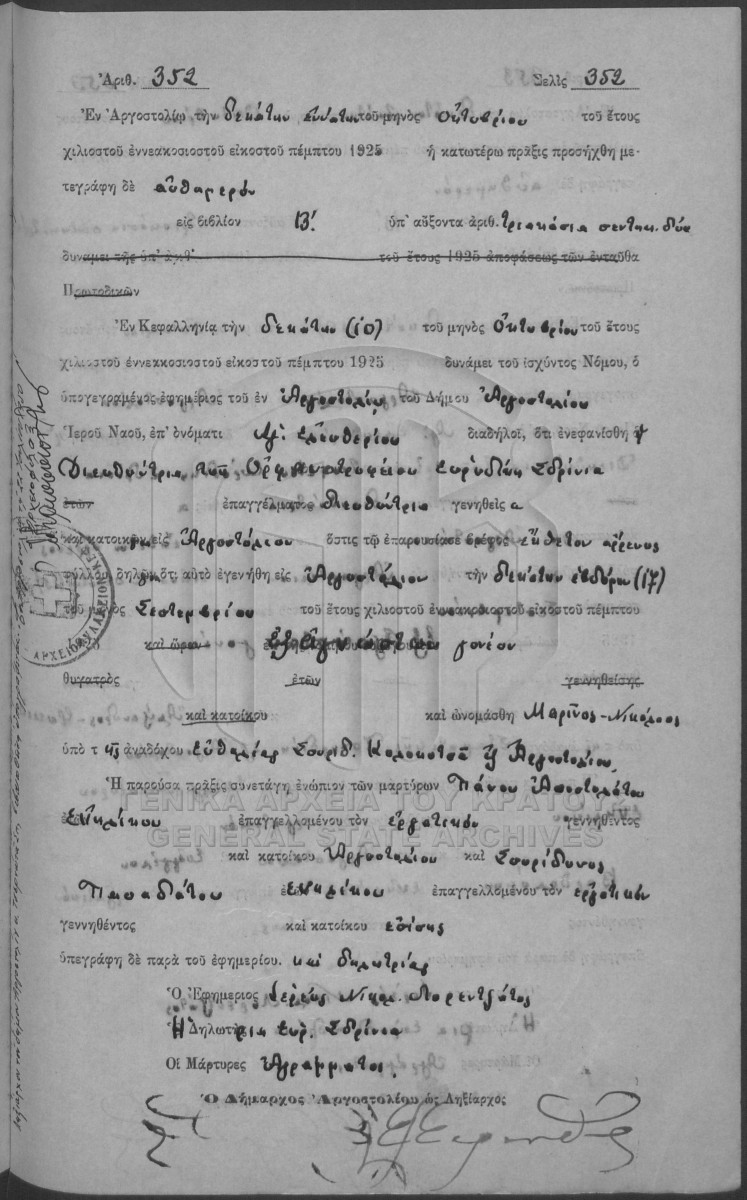 Ἀριθ. 352 Σελὶς 352
Ἐν Ἀργοστολίῳ τὴν δεκάτην ἐννάτην τοῦ μηνὸς Ὀκτωβρίου τοῦ ἔτους
χιλιοστοῦ ἐννεακοσιοστοῦ εἰκοστοῦ πέμπτου 1925 ἡ κατωτέρω πρᾶξις προσήχθη με-
τεγράφη δὲ αὐθημερόν
εἰς βιβλίον Β'. ὑπ' αὔξοντα ἀριθ. τριακόσια πεντήκ. δύο
δυνάμει τῆς ὑπ' ἀριθ. τοῦ ἔτους 1925 ἀποφάσεως τῶν ἐνταῦθα
Πρωτοδικῶν
Ἐν Κεφαλληνίᾳ τὴν δεκάτην (10) τοῦ μηνὸς Ὀκτωβρίου τοῦ ἔτους
χιλιοστοῦ ἐννεακοσιοστοῦ εἰκοστοῦ πέμπτου 1925 δυνάμει τοῦ ἰσχύντος Νόμου, ὁ
ὑπογεγραμένος ἐφημέριος τοῦ ἐν Ἀργοστολίῳ τοῦ Δήμου Ἀργοστολίου
Ἱεροῦ Ναοῦ, ἐπ' ὀνόματι Ἁγ. Ἐλευθερίου διαδηλοῖ, ὅτι ἐνεφανίσθη ἡ
Διευθύντρια τοῦ Ὀρφανοτροφείου Εὐρυδίκη Σδρίνια
ἐτῶν ἐπαγγέλματος διευθύντρια γενηθεῖσα
καὶ κατοικῶν εἰς Ἀργοστόλιον ὅστις τῷ ἐπαρουσίασε βρέφος ἔκθετον ἄρρενος
φύλλου, δηλῶν ὅτι αὐτὸ ἐγενήθη εἰς Ἀργοστόλιον τὴν δεκάτην ἑβδόμην (17)
τοῦ μηνὸς Σεπτεμβρίου τοῦ ἔτους χιλιοστοῦ ἐννεακοσιοστοῦ εἰκοστοῦ πέμπτου
καὶ ὥραν ἐξ ἀγνώστων γονέων
θυγατρὸς ἐτῶν γεννηθείσης
καὶ κατοίκου καὶ ὠνομάσθη Μαρῖνος-Νικόλαος
ὑπὸ τῆς ἀναδόχου Εὐθαλίας Σπυρίδ. Κολοκοτσᾶ ἐξ Ἀργοστολίου
Ἡ παροῦσα πρᾶξις συνετάγη ἐνώπιον τῶν μαρτύρων Πάνου Ἀποστολάτου
ἐνηλίκου ἐπαγγελλομένου τὸν ἐργατικόν γεννηθέντος
καὶ κατοίκου Ἀργοστολίου καὶ Σπυρίδωνος
Παπαδάτου ἐνηλίκου ἐπαγγελλομένου τὸν ἐργατικόν
γεννηθέντος καὶ κατοίκου ἐπίσης
ὑπεγράφη δὲ παρὰ τοῦ ἐφημερίου. καὶ δηλωτρίας
Ὁ Ἐφημεριος Ἱερεύς Νικόλ. Λορεντζάτος
Ἡ Δηλώτρια Εὐρ. Σδρίνια
Οἱ Μάρτυρες Ἀγράμματοι.
Ὁ Δήμαρχος Ἀργοστολίου ὡς Ληξίαρχος
ΓΕΝΙΚΑ ΑΡΧΕΙΑ ΤΟΥ ΚΡΑΤΟΥΣ
GENERAL STATE ARCHIVES